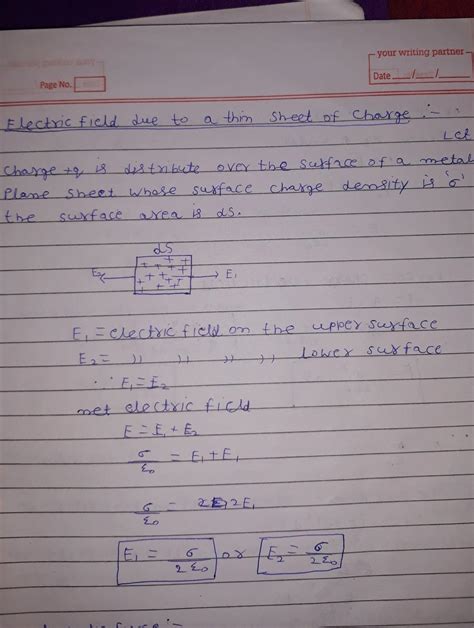 your writing partner
Page No.
Date
Electric field due to a thin sheet of Charge :-
Let
Charge +q is distribute over the surface of a metal
Plane sheet whose surface charge density is 'σ'
the surface area is ds.
dS
+ + + + + + + + + +
E₂ E₁
E₁ = electric field on the upper surface
E₂ = ,, ,, ,, ,, lower surface
∵ E₁ = E₂
net electric field
E = E₁ + E₂
σ/ε₀ = E₁ + E₁
σ/ε₀ = 2E₁
E₁ = σ/2ε₀ or E₂ = σ/2ε₀